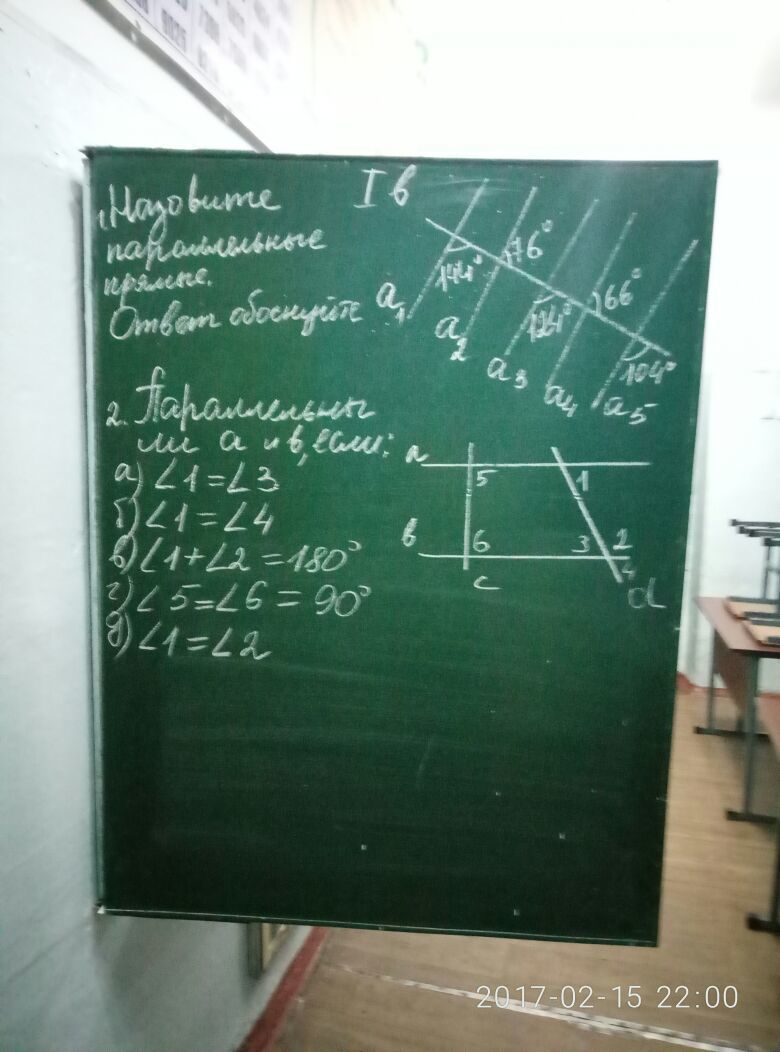 I в
1. Назовите
параллельные
прямые.
Ответ обоснуйте
a₁ a₂ a₃ a₄ a₅
76°
66°
104°
2. Параллельны
ли a и в, если:
а) ∠1=∠3
б) ∠1=∠4
в) ∠1+∠2=180°
г) ∠5=∠6=90°
д) ∠1=∠2
a
5 1
в
6 3 2
4
c d
2017-02-15 22:00